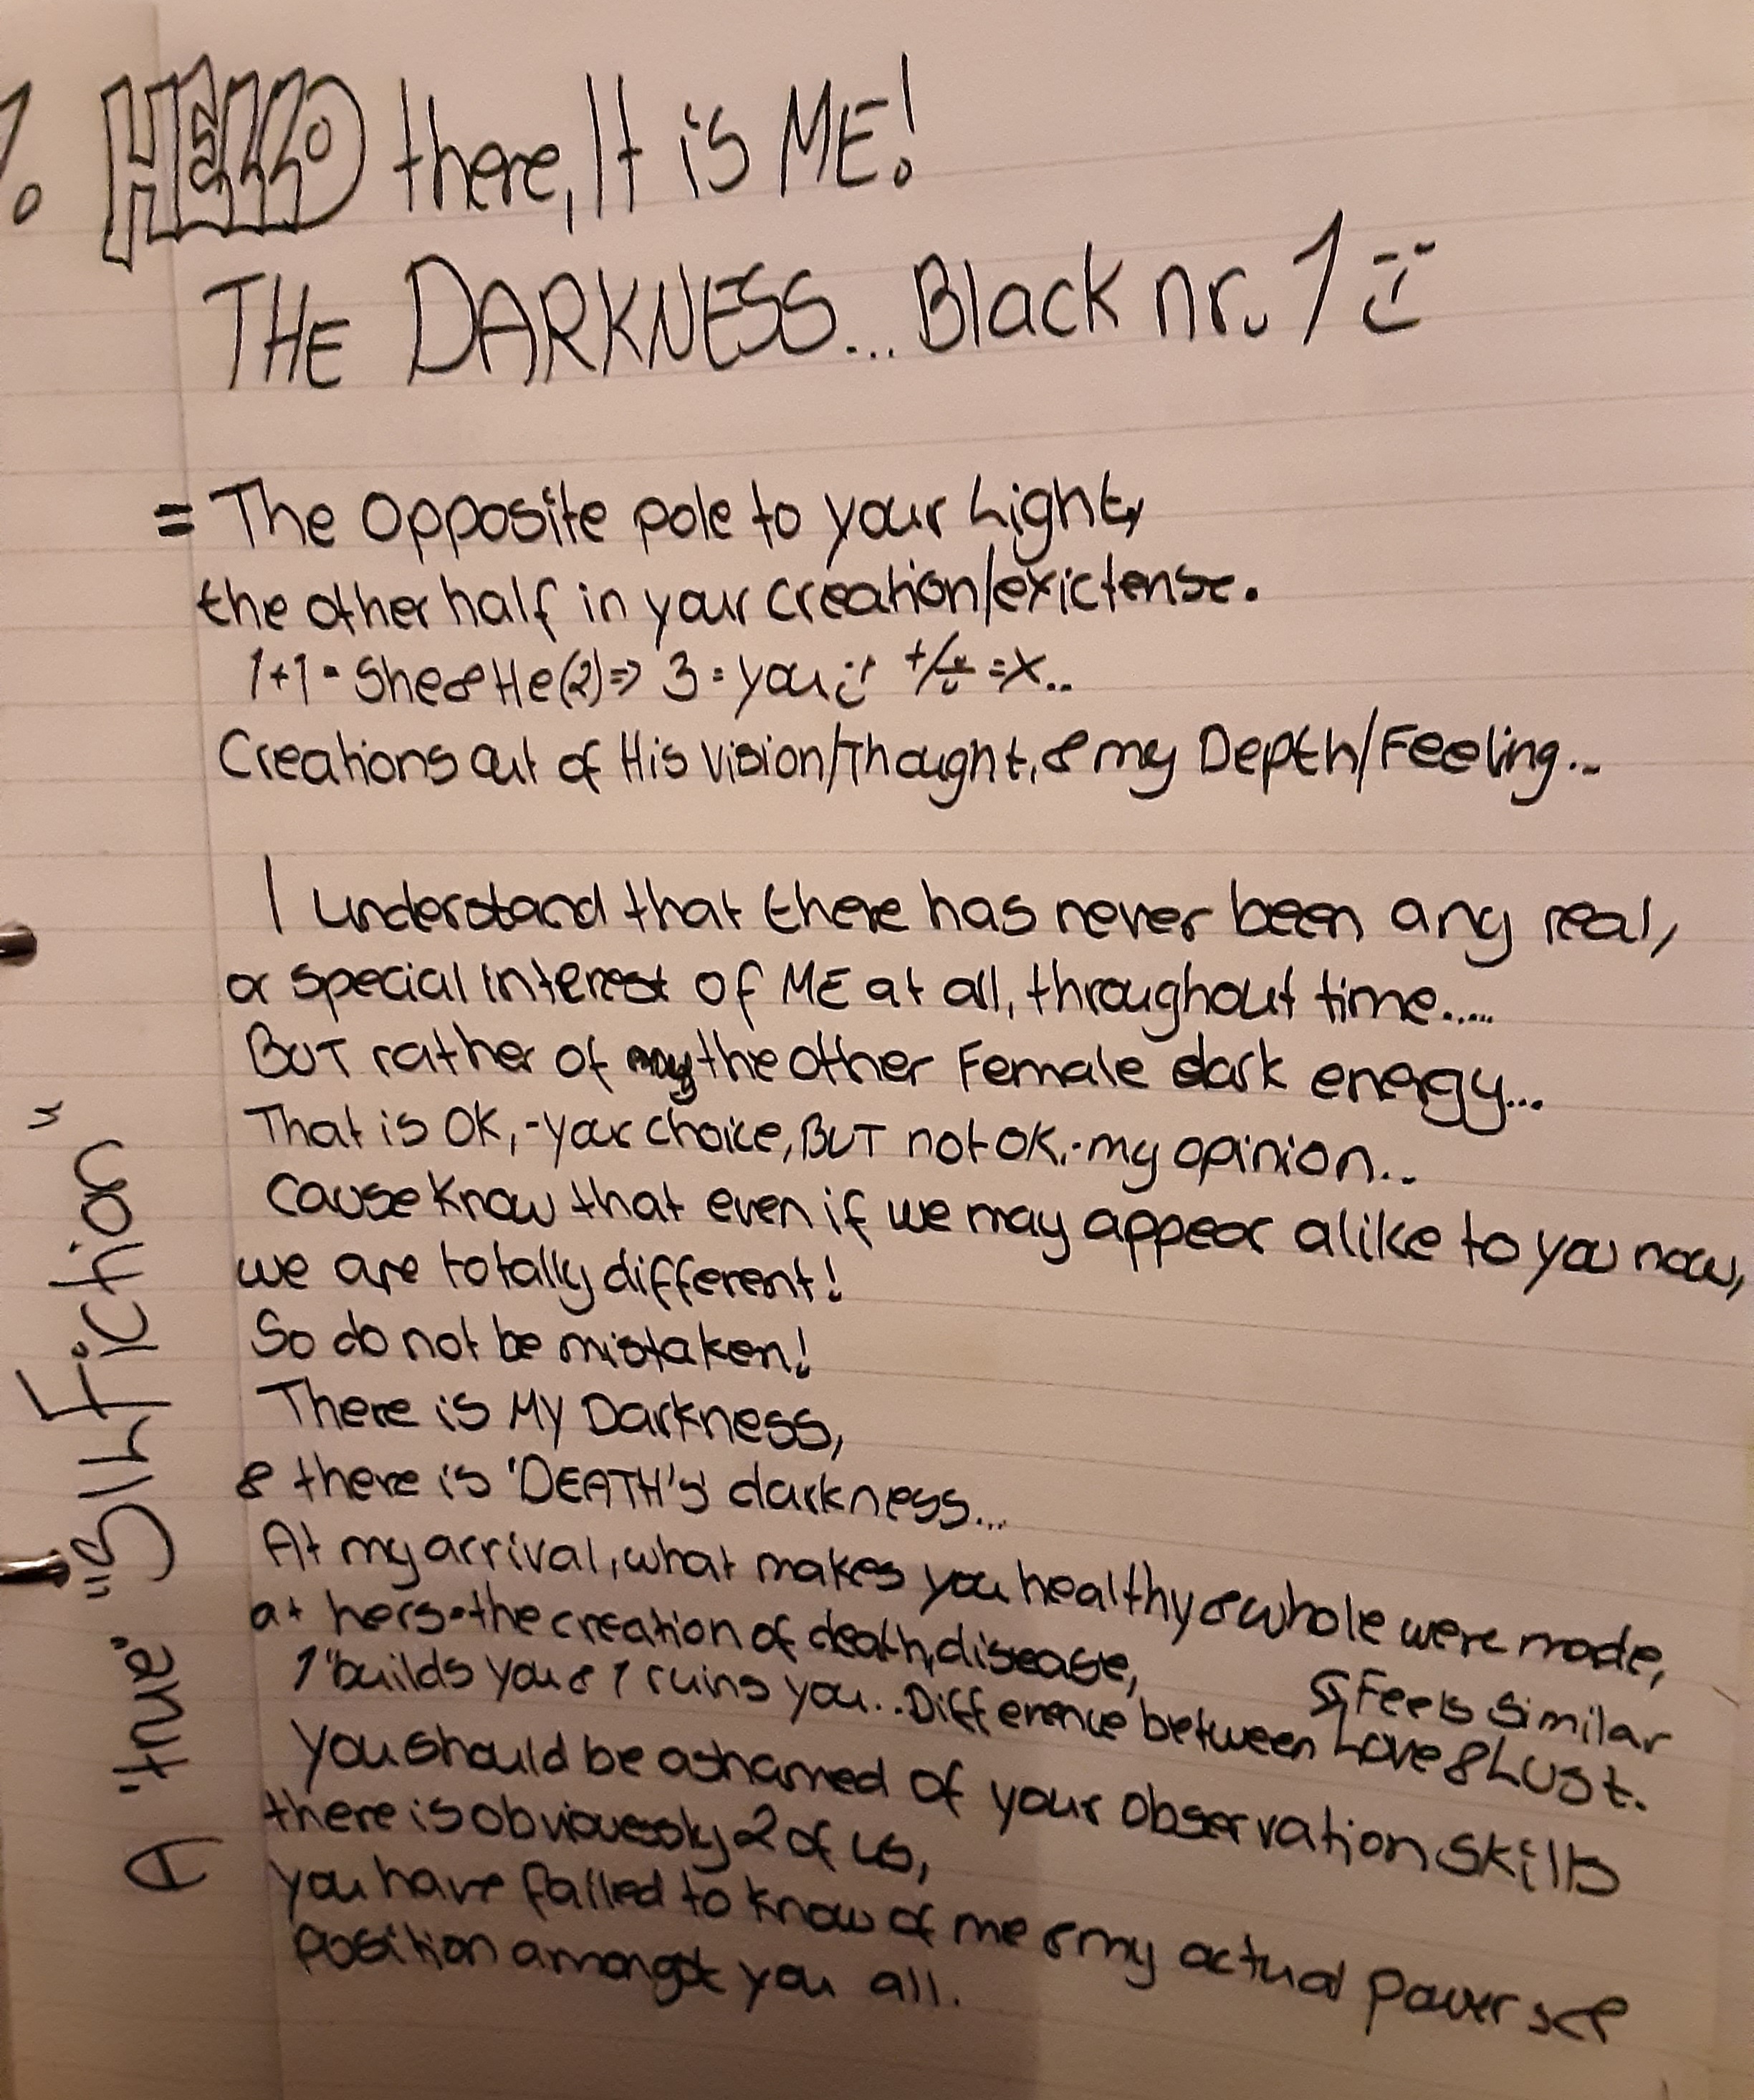 1. HELLO there, It is ME!
THE DARKNESS... Black nr. 1 :)
= The Opposite pole to your Light,
the other half in your creation/exictense.
1+1 = She & He (2) => 3 = you :) +/÷ = X..
Creations out of His Vision/Thought, & my Depth/Feeling...
I understand that there has never been any real,
or special interest of ME at all, throughout time.....
BUT rather of the other Female dark energy...
That is OK, - your choice, BUT not OK, - my opinion...
Cause Know that even if we may appear alike to you now,
we are totally different!
So do not be mistaken!
There is My Darkness,
& there is 'DEATH's' darkness...
At my arrival, what makes you healthy & whole were made,
at hers - the creation of death, disease,
1 builds you & 1 ruins you... Difference between Love & Lust.
Feels Similar
You should be ashamed of your observation skills
there is obviouessly 2 of us,
you have failed to know of me & my actual power &
position amongst you all.
A true "BIG Fiction"